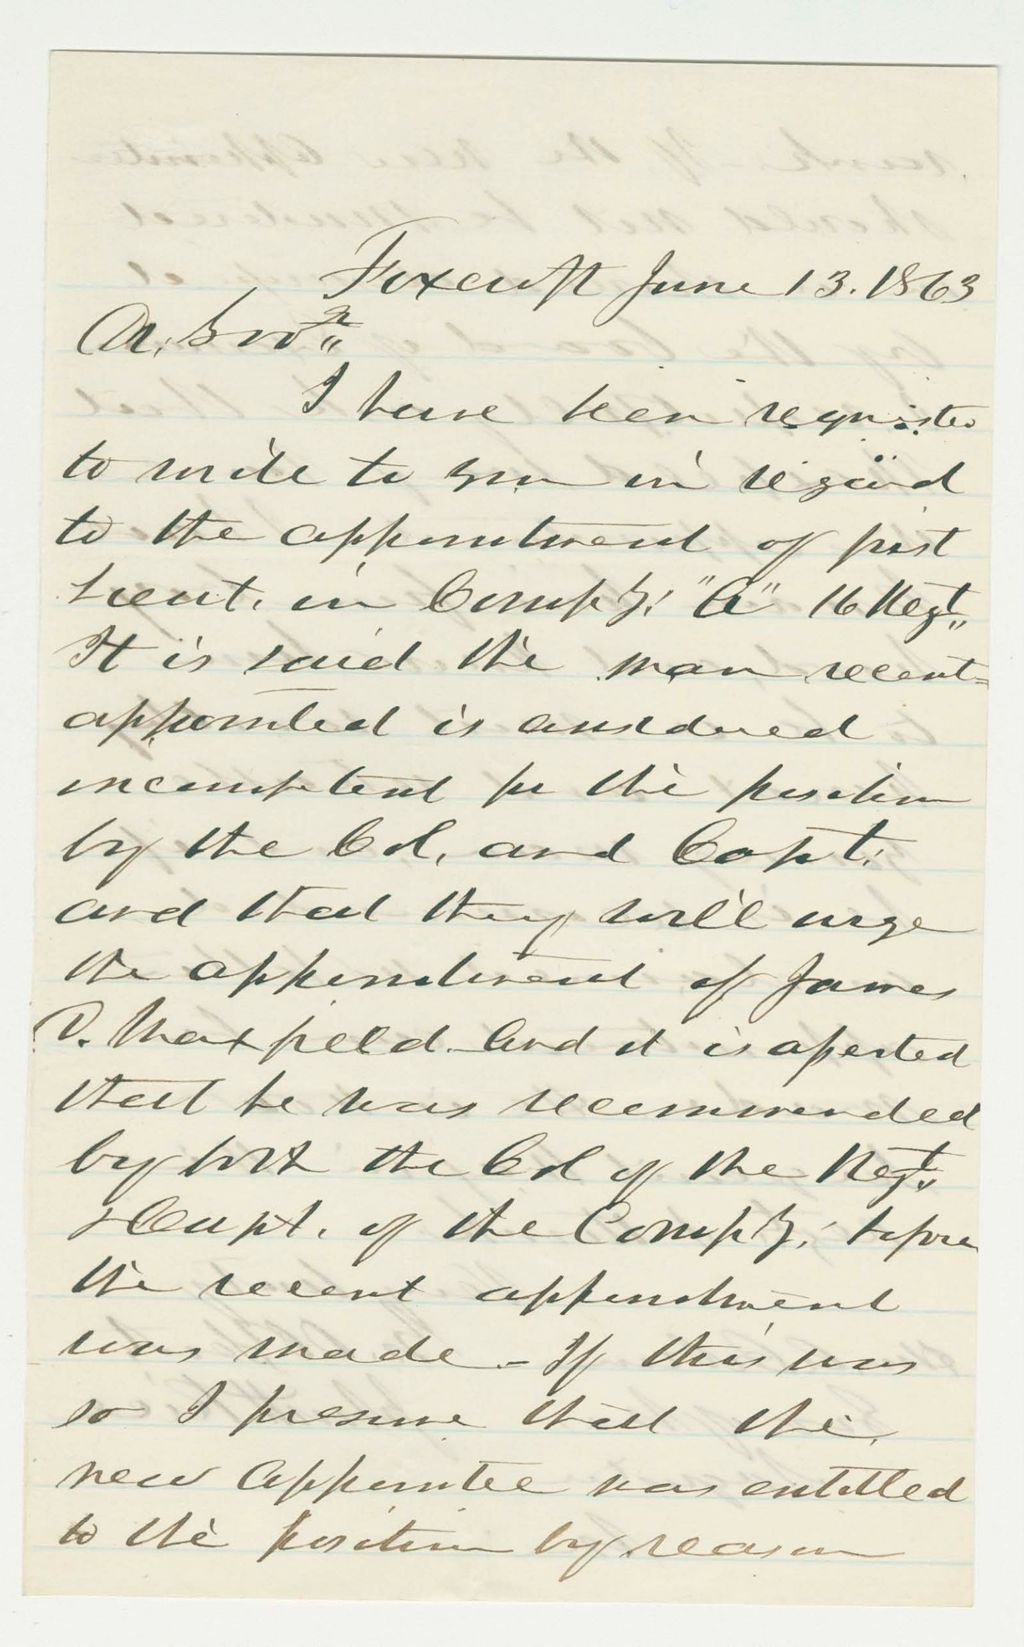 Foxcroft June 13. 1863
A. Govr,,
I have been requested
to write to you in regard
to the appointment of first
Lieut. in Comp'y. "A" 16 Regt,,
It is said the man recent=
appointed is considered
incompetent for the position
by the Col, and Capt.
and that they will urge
the appointment of James
D. Maxfield. And it is asserted
that he was recommended
by both the Col of the Regt,,
& Capt. of the Comp'y, before
the recent appointment
was made - If this was
so I presume that the
new appointee was entitled
to the position by reason